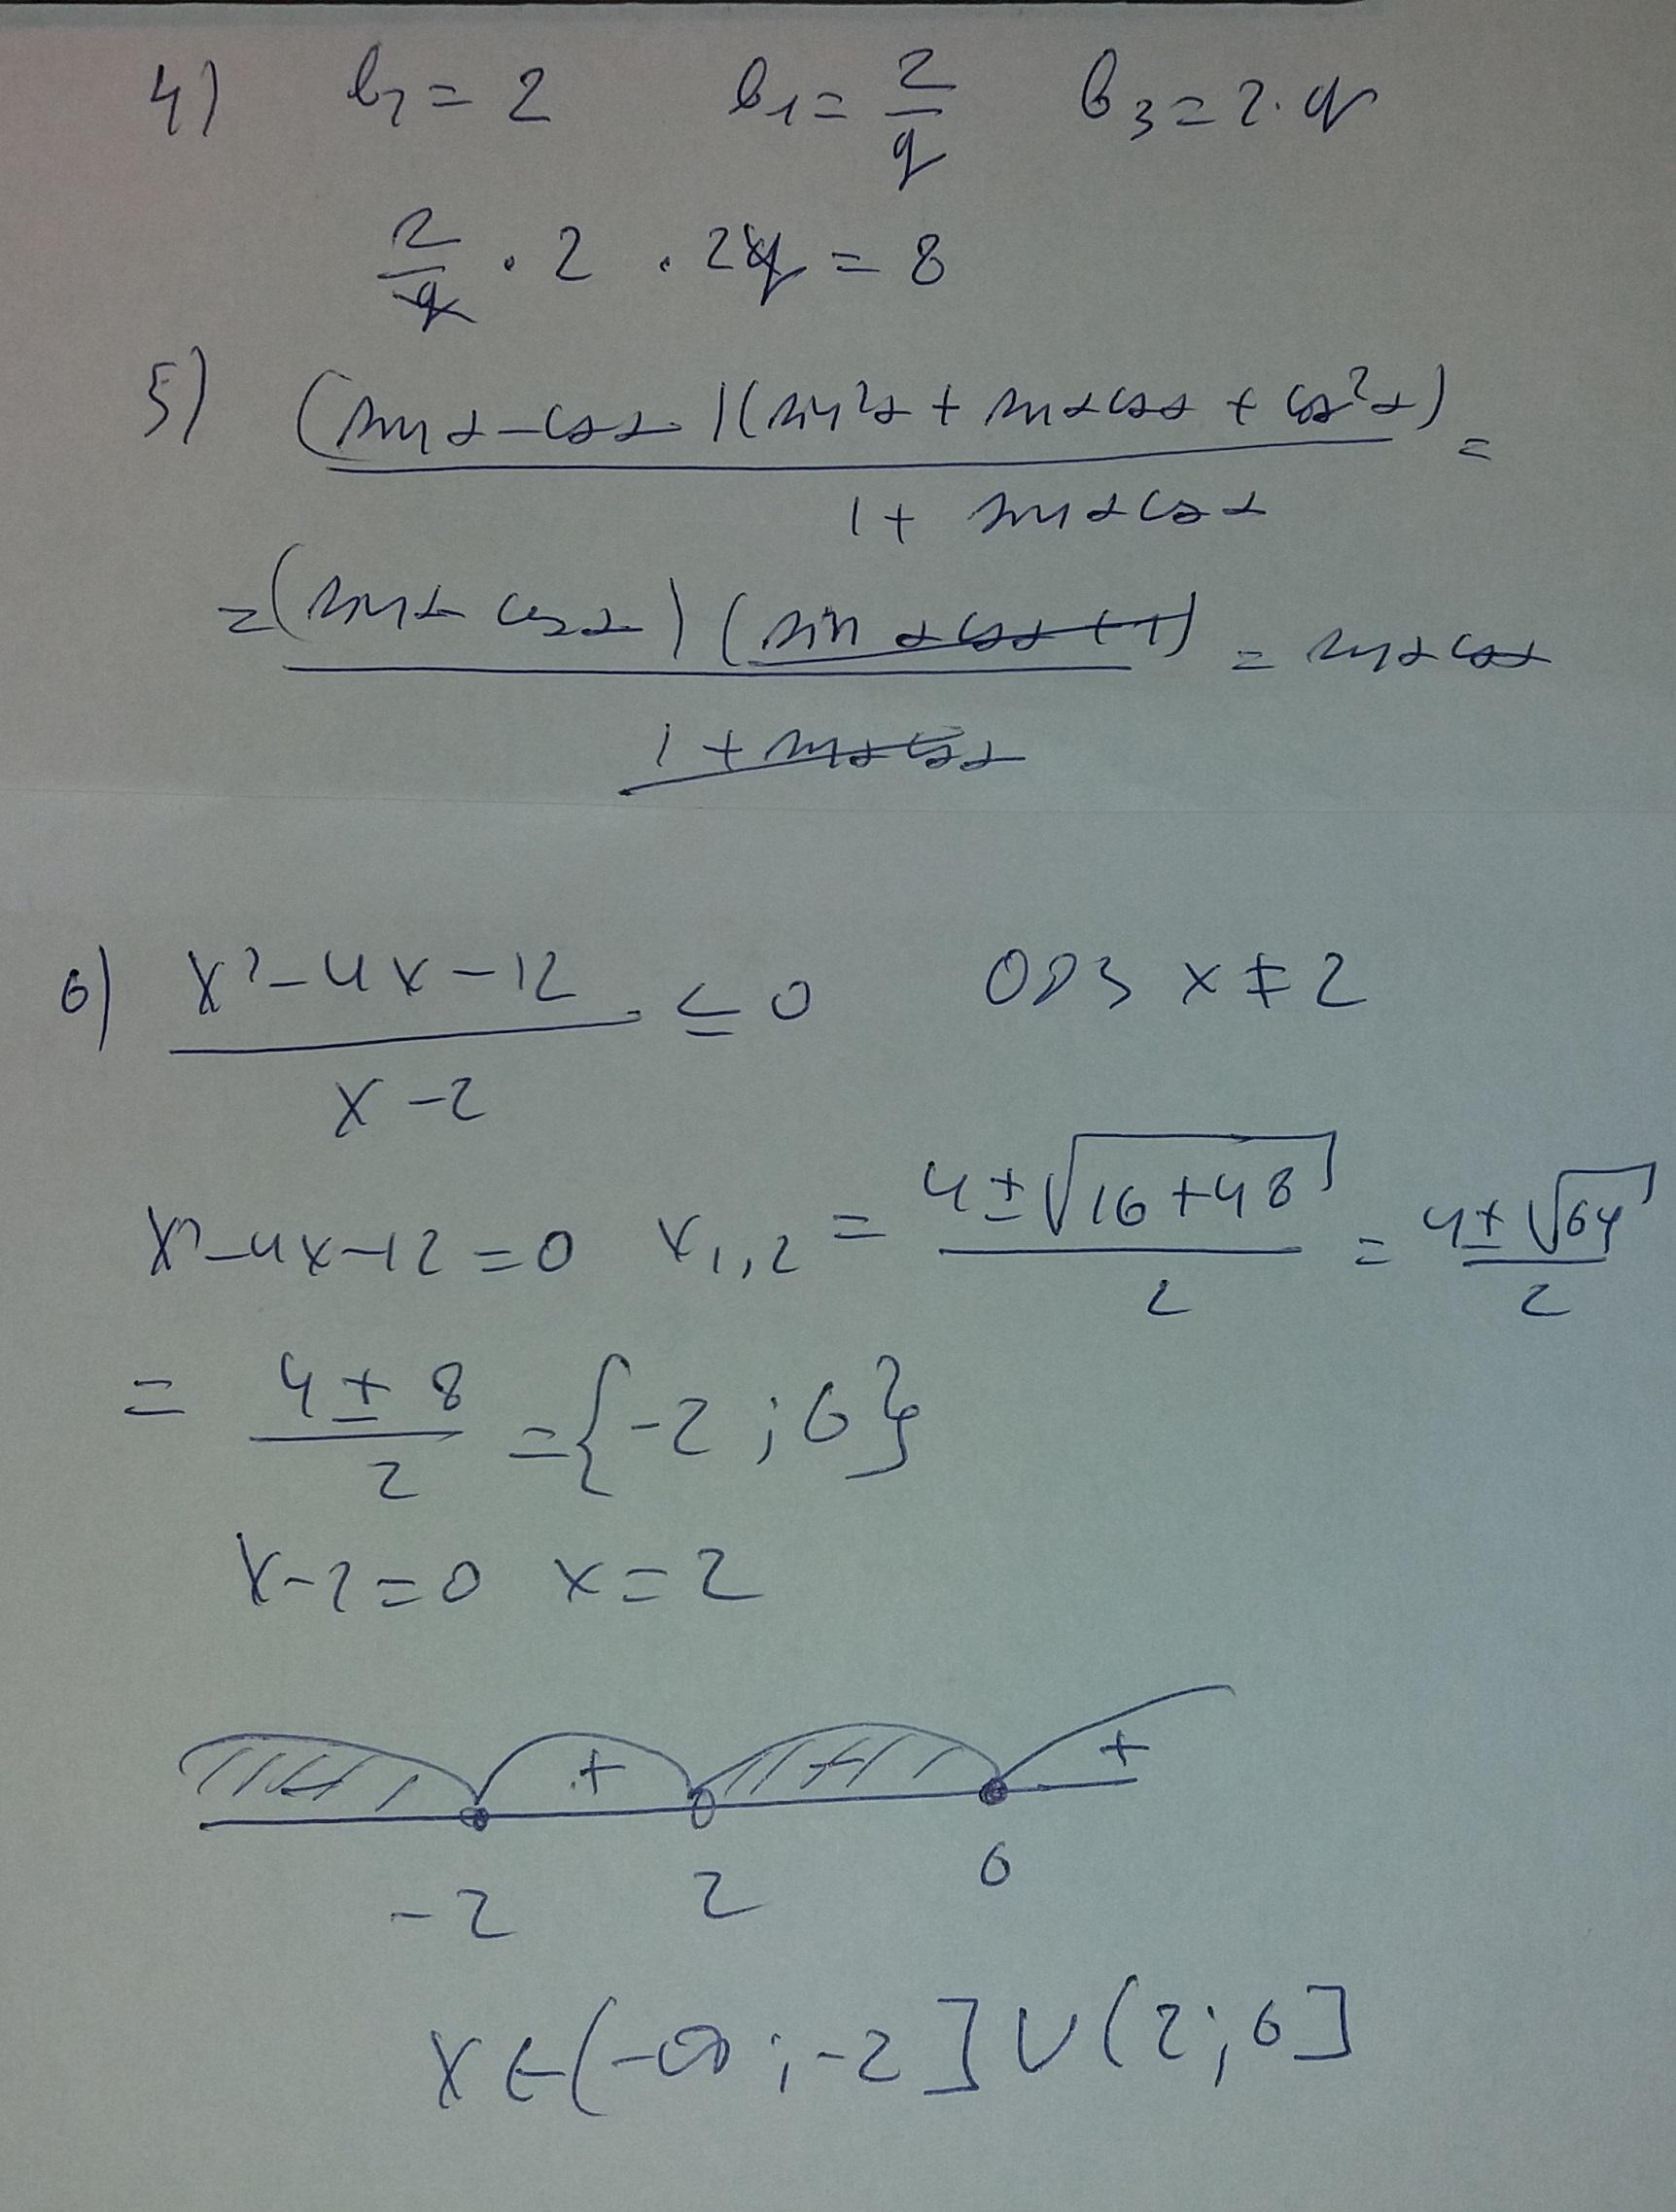 4) b₂ = 2 b₁ = 2/q b₃ = 2·q
2/q · 2 · 2q = 8
5) (sin α - cos α)(sin²α + sin α cos α + cos²α) / (1 + sin α cos α) =
= (sin α cos α)(sin α cos α + 1) / (1 + sin α cos α) = sin α cos α
6) (x² - 4x - 12) / (x - 2) ≤ 0 ОДЗ x ≠ 2
x² - 4x - 12 = 0 x₁,₂ = (4 ± √(16 + 48)) / 2 = (4 ± √64) / 2
= (4 ± 8) / 2 = {-2 ; 6}
x - 2 = 0 x = 2
+ +
-2 2 6
x ∈ (-∞ ; -2] ∪ (2 ; 6]